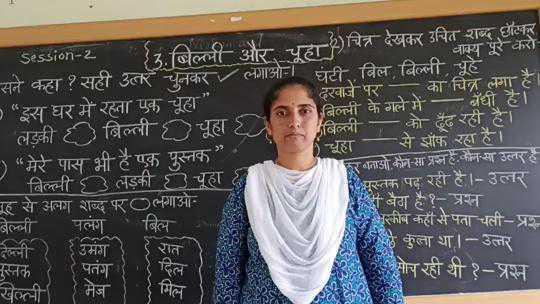 Session-2
3. बिल्ली और चूहा
सने कहा? सही उत्तर चुनकर ✓ लगाओ।
"इस घर में रहता एक चूहा"
लड़की बिल्ली चूहा
"मेरे पास भी है एक पुस्तक"
बिल्ली लड़की चूहा
मूह से अलग शब्द पर लगाओ-
बिल्ली पलंग बिल
दिल्ली उमंग रात
पुस्तक पतंग दिल
खिल्ली मेज मिल
2) चित्र देखकर उचित शब्द छाँटकर
वाक्य पूरे करो
घंटी, बिल, बिल्ली, चूहे
दरवाजे पर का चित्र लगा है।
बिल्ली के गले में बँधी है।
बिल्ली को ढूँढ रही है।
चूहा से झाँक रहा है।
बताओ, कौन-सा प्रश्न है, कौन-सा उत्तर है
पुस्तक पढ़ रही है।- उत्तर
बैठा है?- प्रश्न
कहाँ से पता चली- प्रश्न
था।- उत्तर
रही थी?- प्रश्न